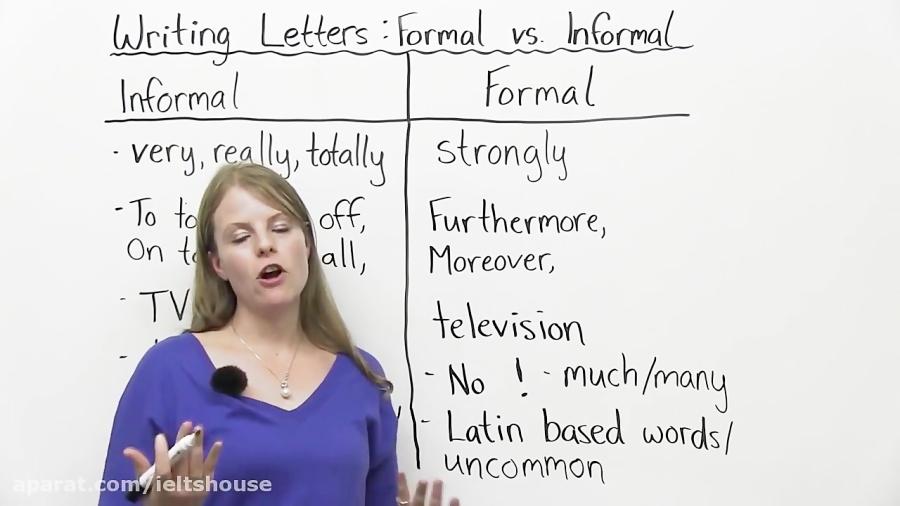 Writing Letters: Formal vs. Informal
Informal
Formal
- very, really, totally
strongly
- To off,
Furthermore,
On all,
Moreover,
- TV
television
-
- No ! - much/many
- Latin based words/
uncommon
aparat.com/ieltshouse